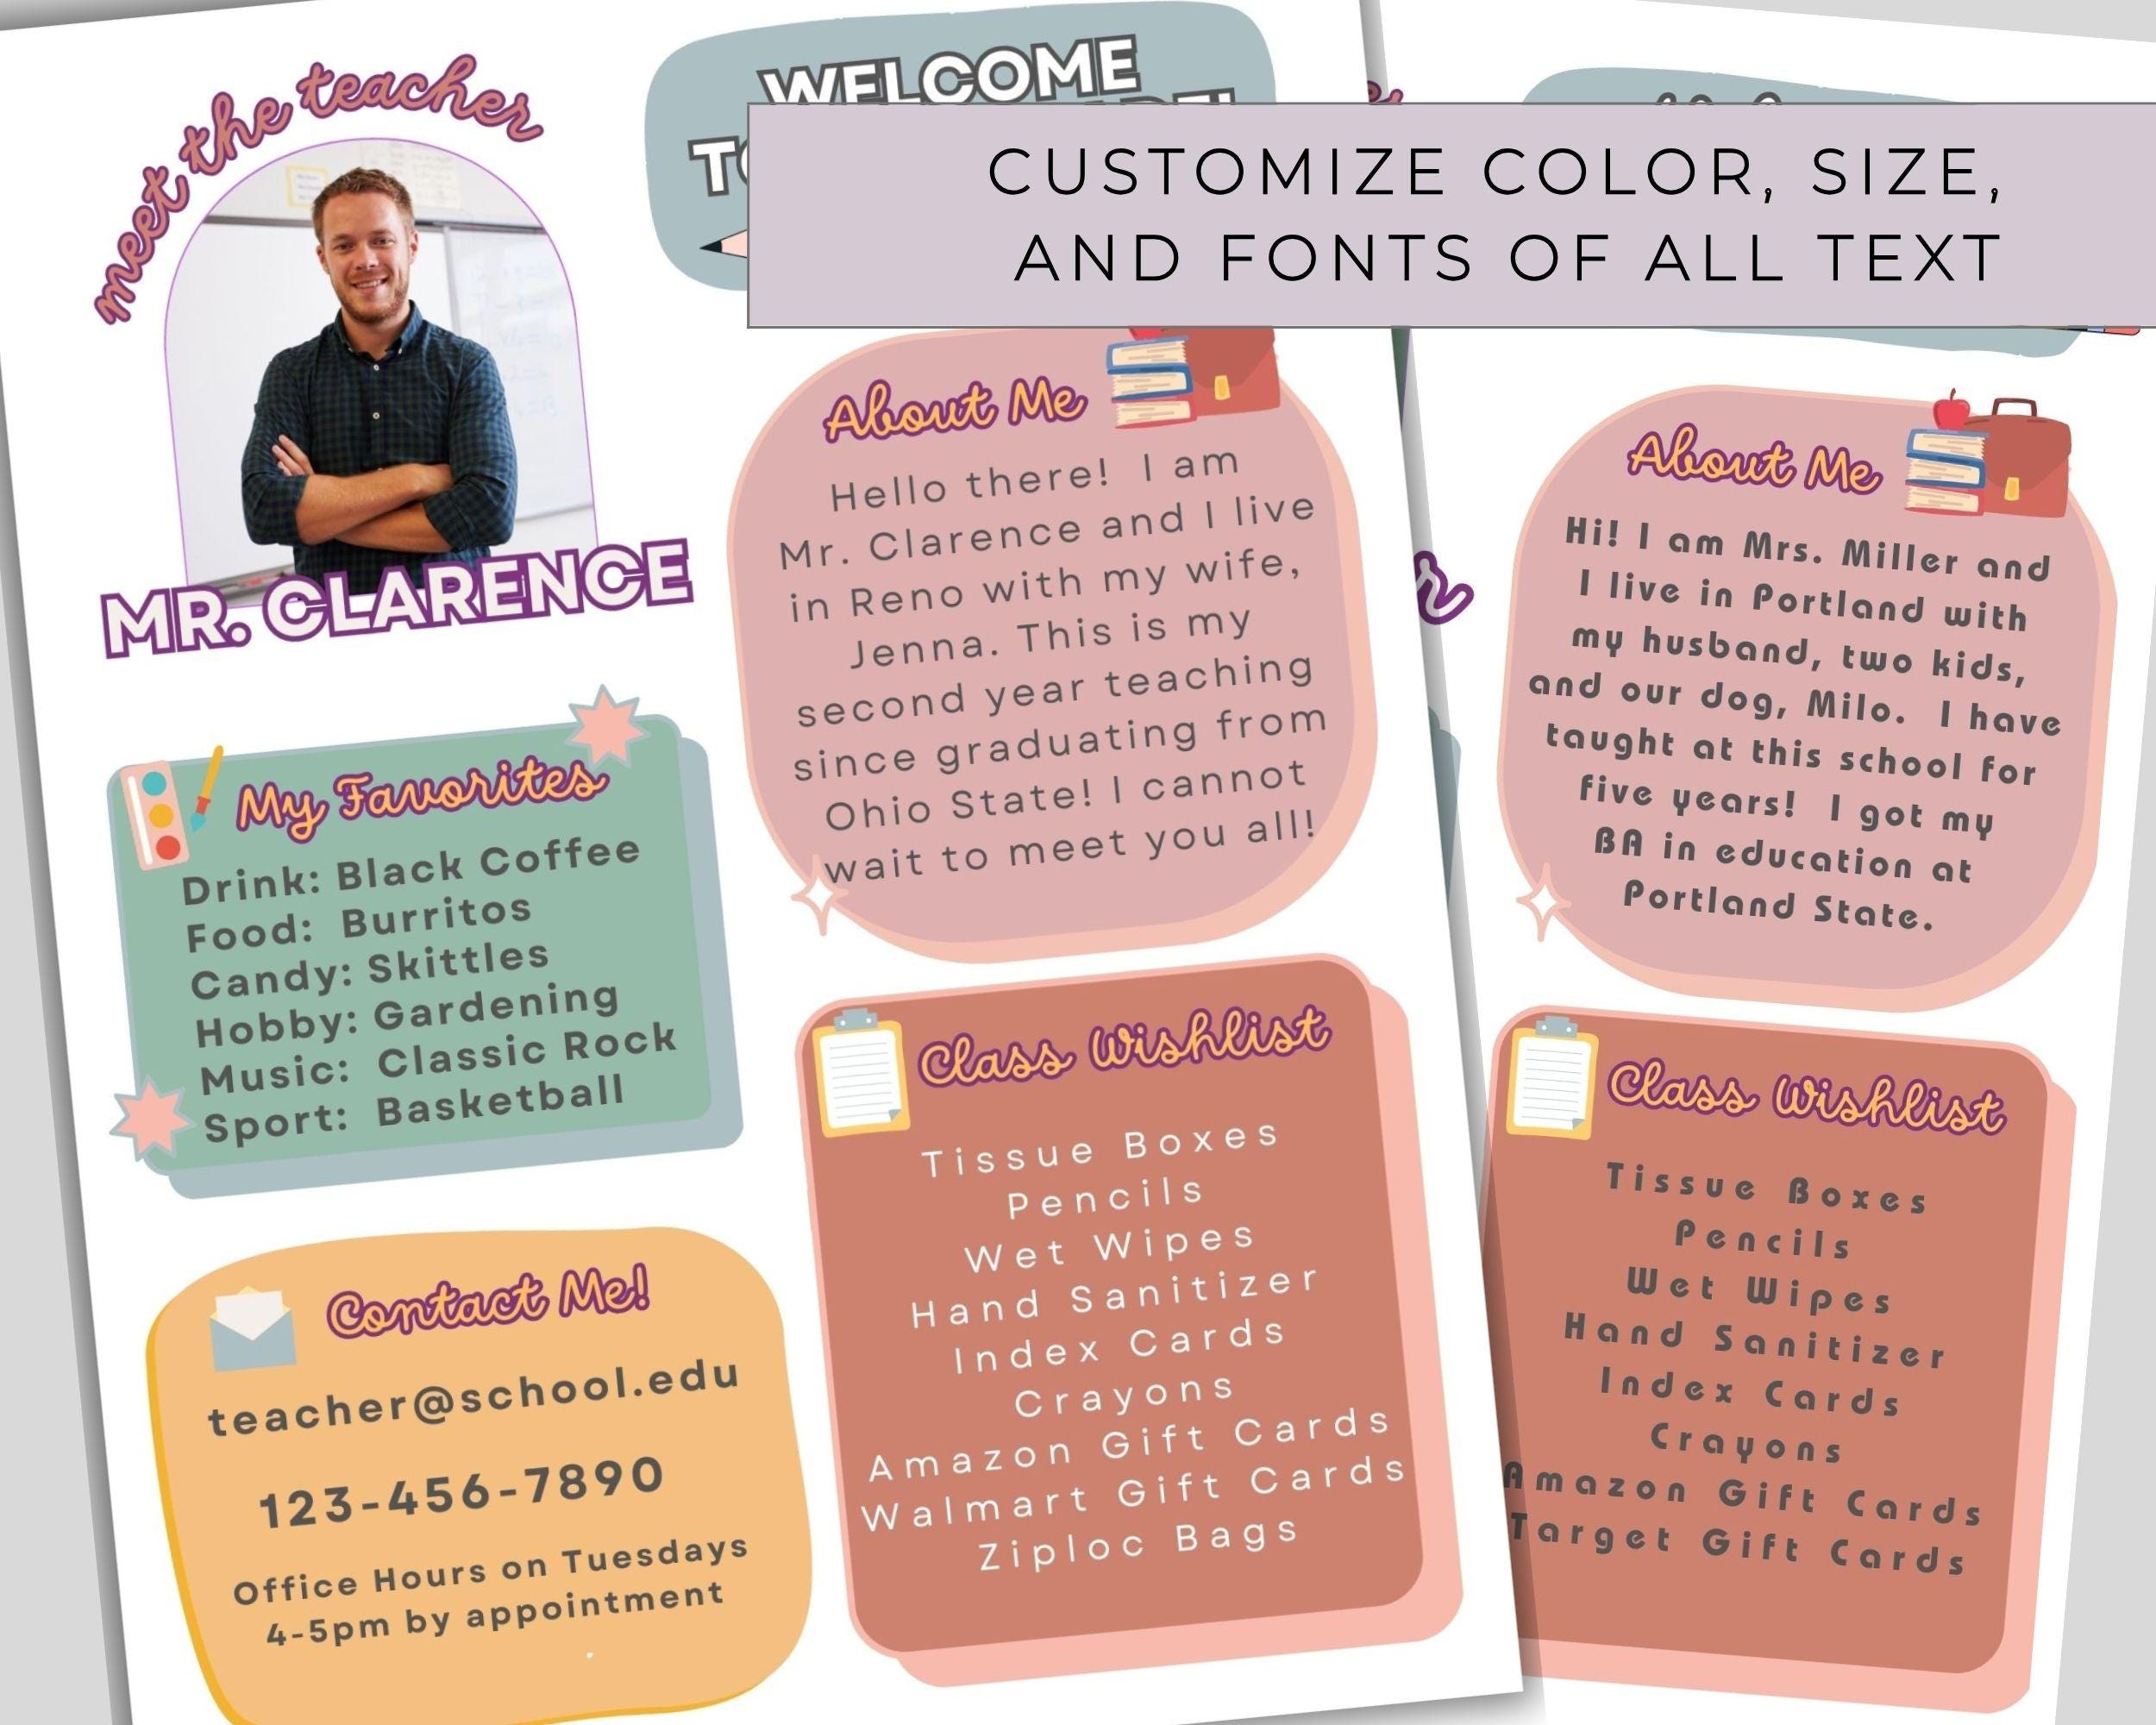 meet the teacher
MR. CLARENCE
WELCOME
CUSTOMIZE COLOR, SIZE,
AND FONTS OF ALL TEXT
My Favorites
Drink: Black Coffee
Food: Burritos
Candy: Skittles
Hobby: Gardening
Music: Classic Rock
Sport: Basketball
Contact Me!
teacher@school.edu
123-456-7890
Office Hours on Tuesdays
4-5pm by appointment
About Me
Hello there! I am
Mr. Clarence and I live
in Reno with my wife,
Jenna. This is my
second year teaching
since graduating from
Ohio State! I cannot
wait to meet you all!
Class Wishlist
Tissue Boxes
Pencils
Wet Wipes
Hand Sanitizer
Index Cards
Crayons
Amazon Gift Cards
Walmart Gift Cards
Ziploc Bags
About Me
Hi! I am Mrs. Miller and
I live in Portland with
my husband, two kids,
and our dog, Milo. I have
taught at this school for
five years! I got my
BA in education at
Portland State.
Class Wishlist
Tissue Boxes
Pencils
Wet Wipes
Hand Sanitizer
Index Cards
Crayons
Amazon Gift Cards
Target Gift Cards